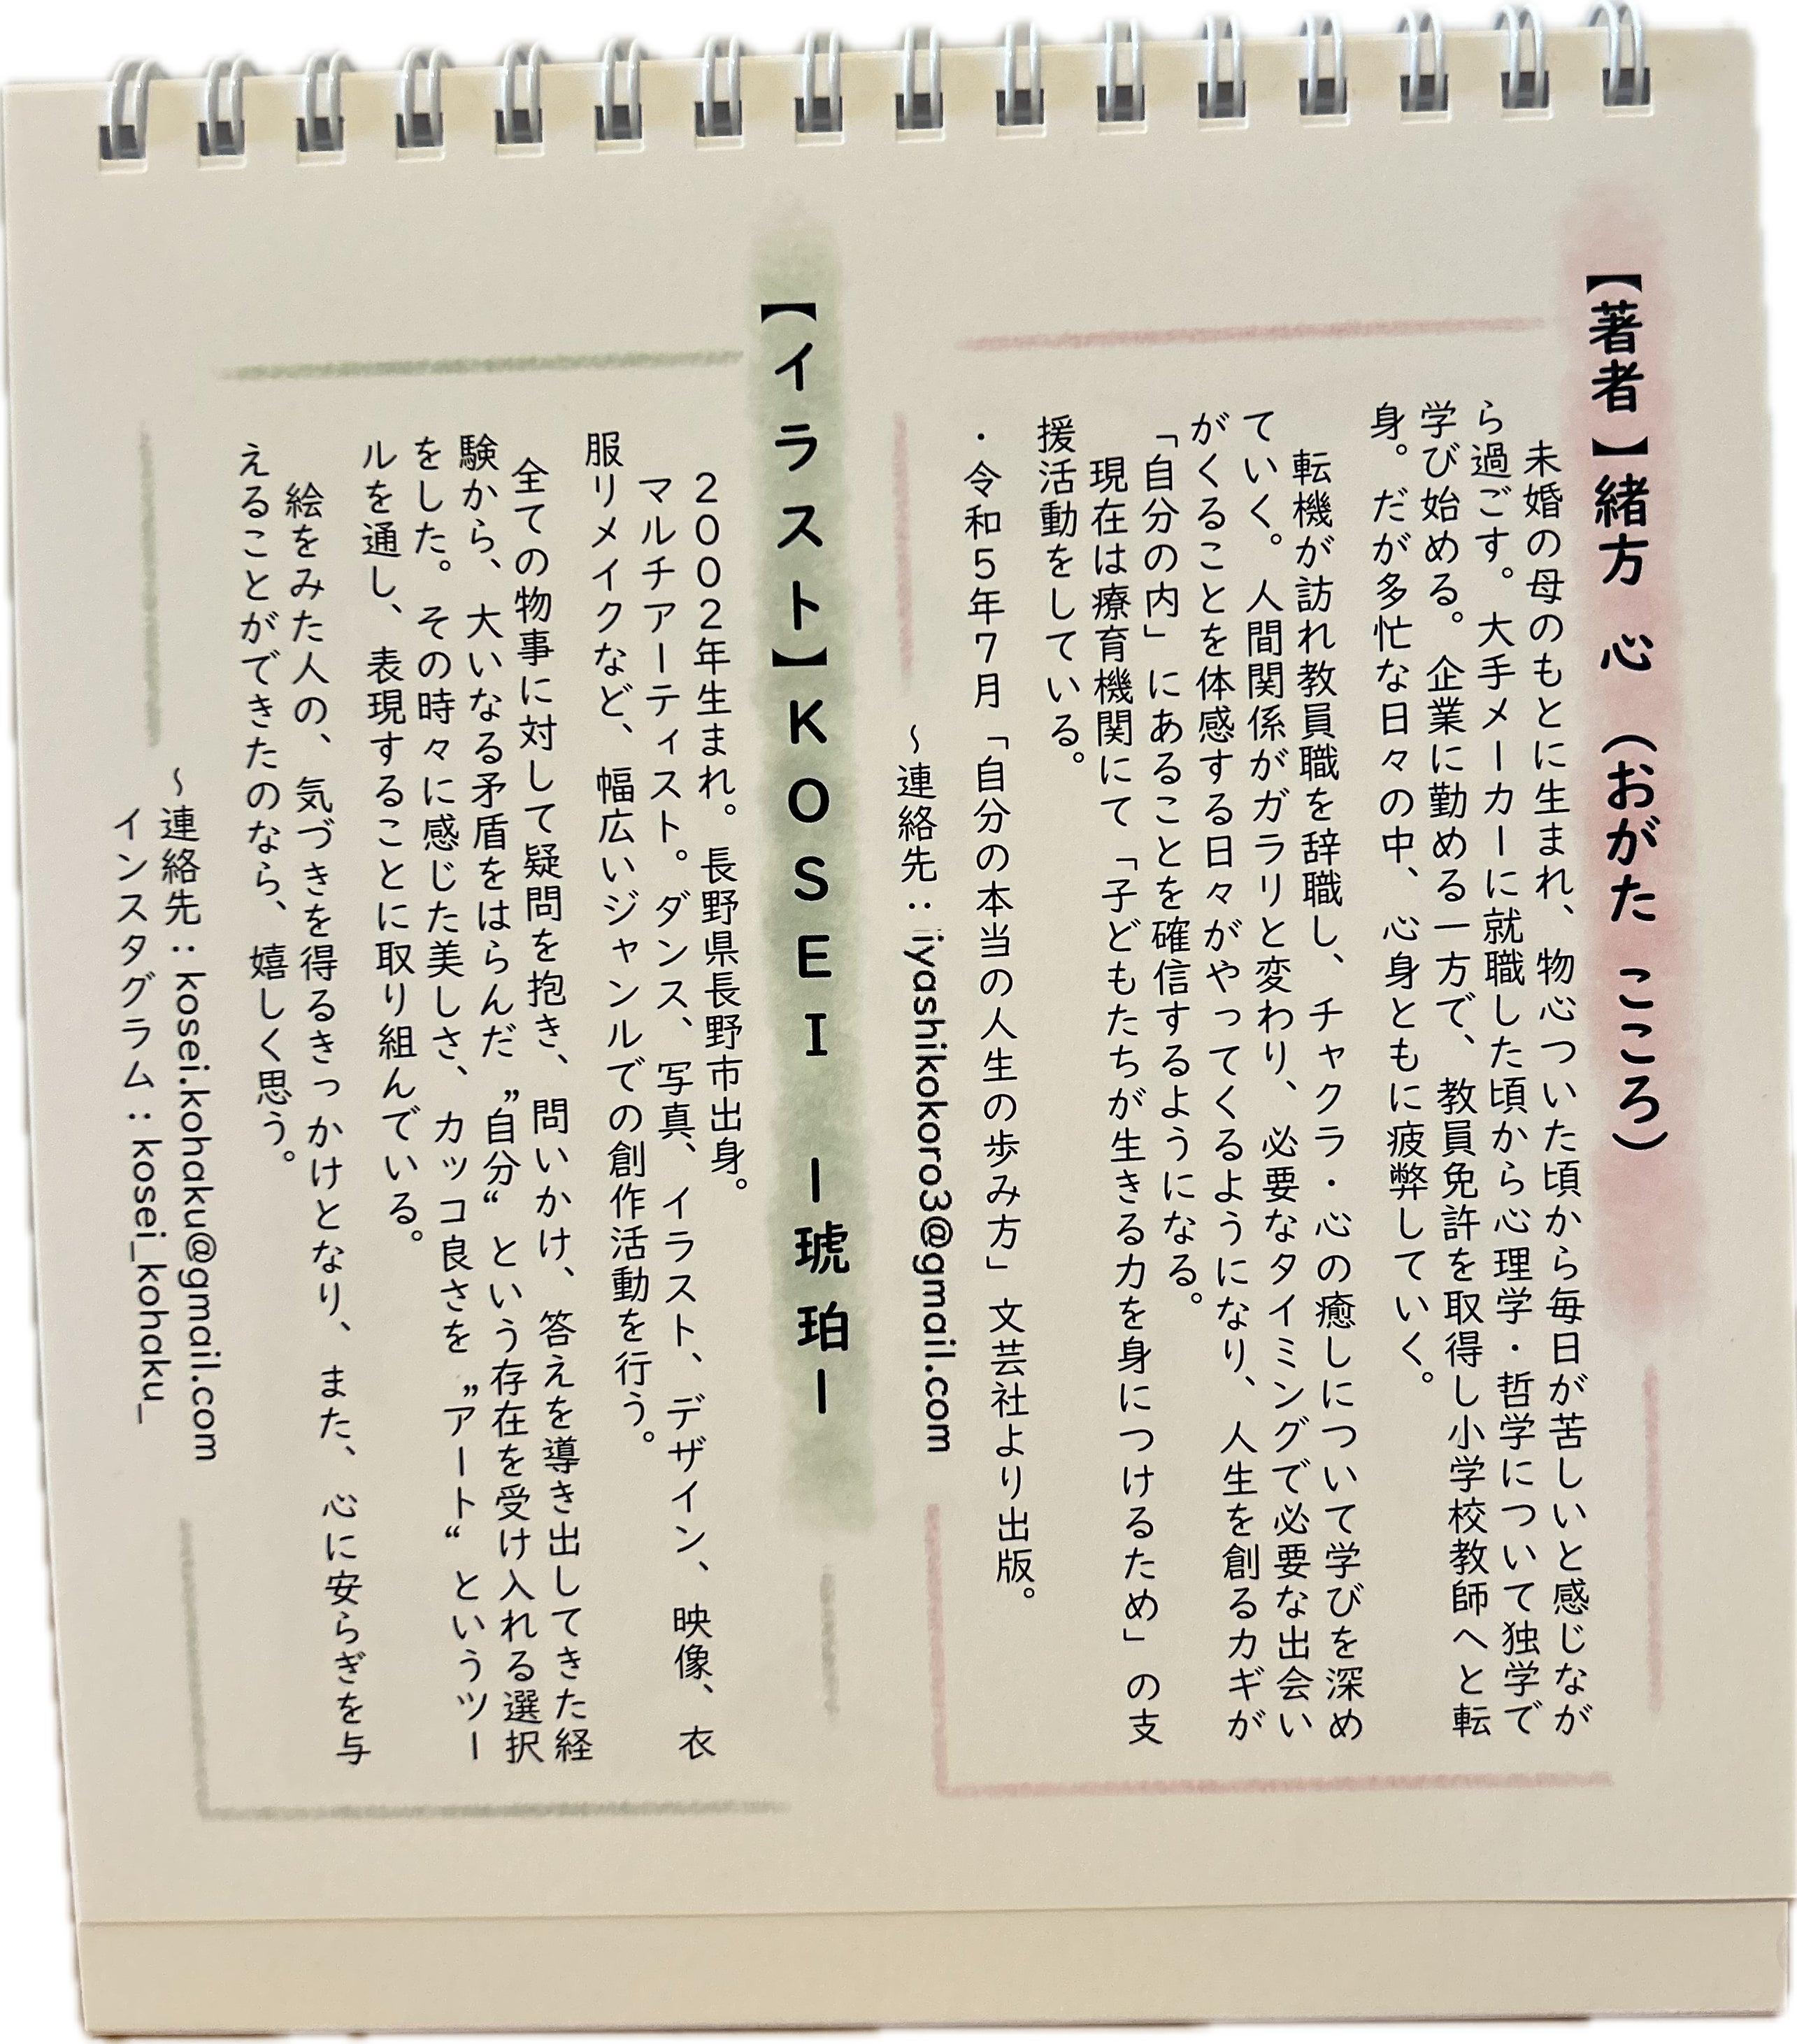 【著者】緒方 心 （おがた こころ）
未婚の母のもとに生まれ、物心ついた頃から毎日が苦しいと感じなが
ら過ごす。大手メーカーに就職した頃から心理学・哲学について独学で
学び始める。企業に勤める一方で、教員免許を取得し小学校教師へと転
身。だが多忙な日々の中、心身ともに疲弊していく。
転機が訪れ教員職を辞職し、チャクラ・心の癒しについて学びを深め
ていく。人間関係がガラリと変わり、必要なタイミングで必要な出会い
がくることを体感する日々がやってくるようになり、人生を創るカギが
「自分の内」にあることを確信するようになる。
現在は療育機関にて「子どもたちが生きる力を身につけるため」の支
援活動をしている。
・令和５年７月「自分の本当の人生の歩み方」文芸社より出版。
～連絡先：iyashikokoro3@gmail.com
【イラスト】ＫＯＳＥＩ ー琥珀ー
２００２年生まれ。長野県長野市出身。
マルチアーティスト。ダンス、写真、イラスト、デザイン、映像、衣
服リメイクなど、幅広いジャンルでの創作活動を行う。
全ての物事に対して疑問を抱き、問いかけ、答えを導き出してきた経
験から、大いなる矛盾をはらんだ”自分“という存在を受け入れる選択
をした。その時々に感じた美しさ、カッコ良さを”アート“というツー
ルを通し、表現することに取り組んでいる。
絵をみた人の、気づきを得るきっかけとなり、また、心に安らぎを与
えることができたのなら、嬉しく思う。
～連絡先：kosei.kohaku@gmail.com
インスタグラム：kosei_kohaku_